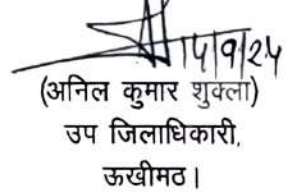 14/9/24
(अनिल कुमार शुक्ला)
उप जिलाधिकारी,
ऊखीमठ।